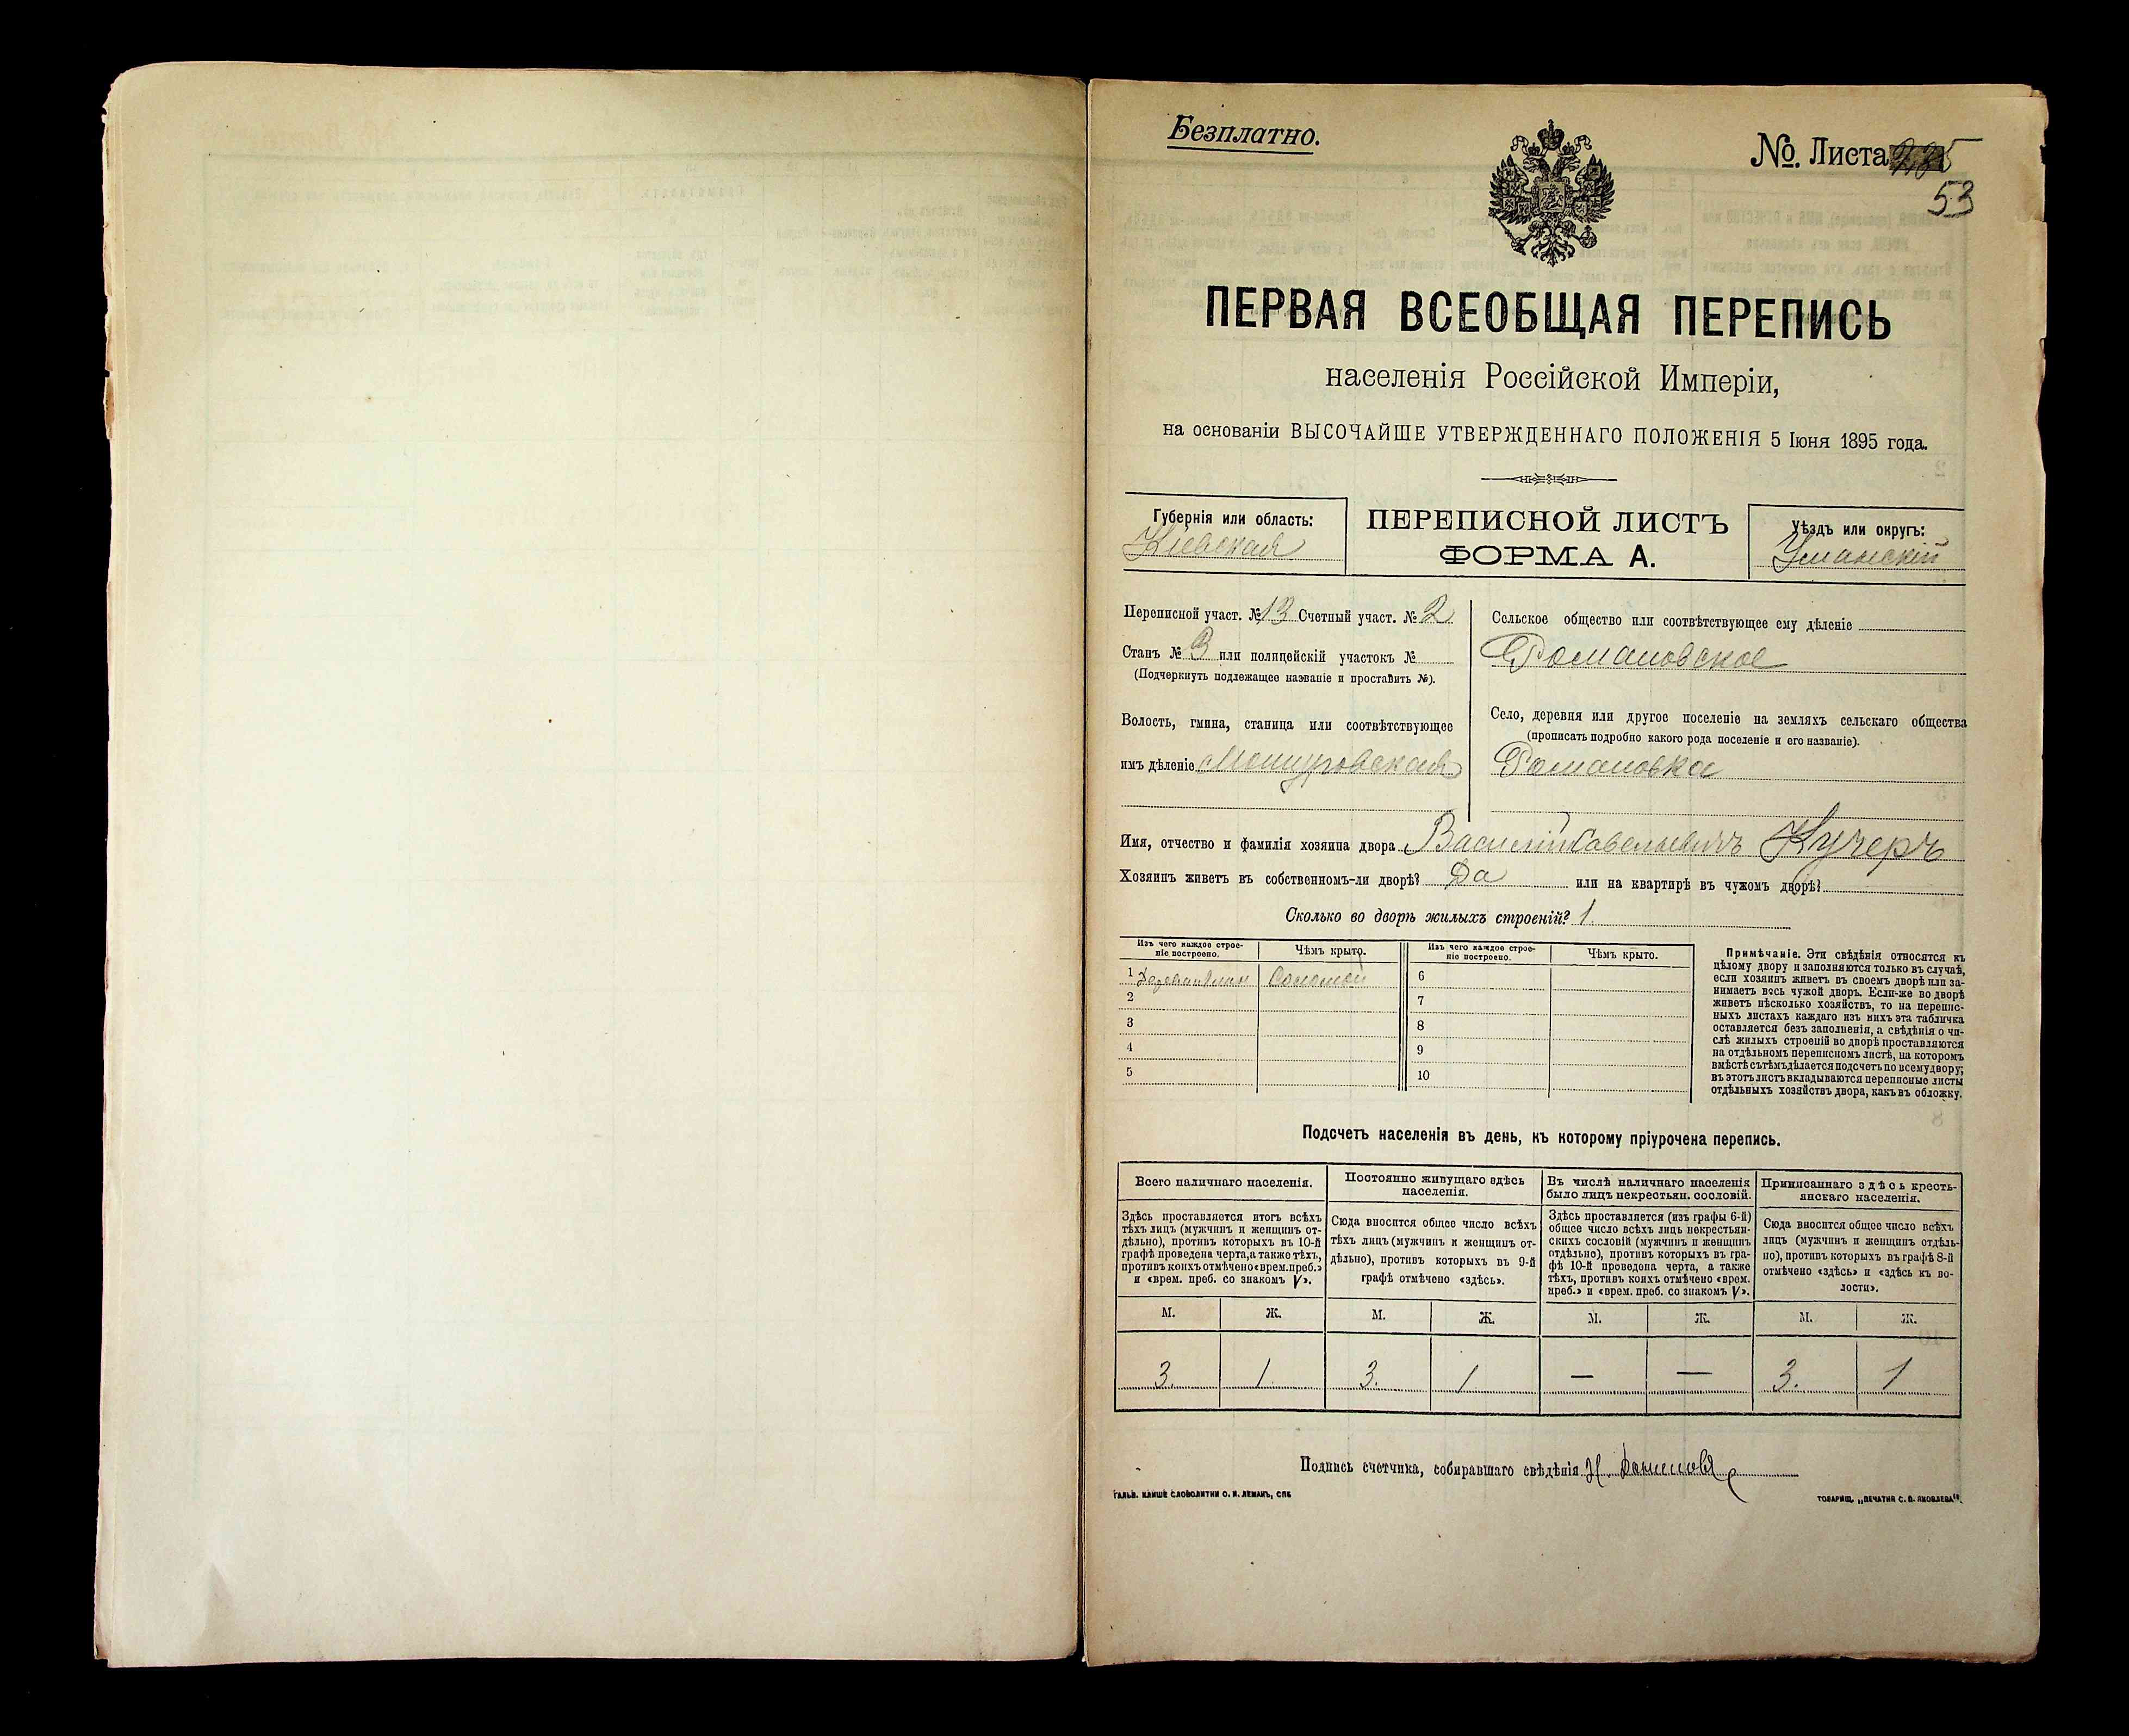 Безплатно.
№. Листа
53
ПЕРВАЯ ВСЕОБЩАЯ ПЕРЕПИСЬ
населенія Россійской Имперіи,
на основаніи ВЫСОЧАЙШЕ УТВЕРЖДЕННАГО ПОЛОЖЕНІЯ 5 Іюня 1895 года.
Губернія или область:
Кіевская
ПЕРЕПИСНОЙ ЛИСТЪ
ФОРМА А.
Уѣздъ или округъ:
Уманскій
Переписной участ. № 13 Счетный участ. № 2
Станъ № 3 или полицейскій участокъ №
(Подчеркнуть подлежащее названіе и проставить №).
Волость, гмина, станица или соотвѣтствующее
имъ дѣленіе
Сельское общество или соотвѣтствующее ему дѣленіе
Романовское
Село, деревня или другое поселеніе на земляхъ сельскаго общества
(прописать подробно какого рода поселеніе и его названіе).
Романовка
Имя, отчество и фамилія хозяина двора Василій Савельевичъ Кучеръ
Хозяинъ живетъ въ собственномъ-ли дворѣ? Да или на квартирѣ въ чужомъ дворѣ?
Сколько во дворѣ жилыхъ строеній? 1.
Изъ чего каждое строе-
ніе построено.
Чѣмъ крыто.
1 Соломой
2
3
4
5
Изъ чего каждое строе-
ніе построено.
Чѣмъ крыто.
6
7
8
9
10
Примѣчаніе. Эти свѣдѣнія относятся къ
цѣлому двору и заполняются только въ случаѣ,
если хозяинъ живетъ въ своемъ дворѣ или за-
нимаетъ весь чужой дворъ. Если-же во дворѣ
живетъ нѣсколько хозяйствъ, то на перепис-
ныхъ листахъ каждаго изъ нихъ эта табличка
оставляется безъ заполненія, а свѣдѣнія о чи-
слѣ жилыхъ строеній во дворѣ проставляются
на отдѣльномъ переписномъ листѣ, на которомъ
вмѣстѣ съ тѣмъ дѣлается подсчетъ по всему двору;
въ этотъ листъ вкладываются переписные листы
отдѣльныхъ хозяйствъ двора, какъ въ обложку.
Подсчетъ населенія въ день, къ которому пріурочена перепись.
Всего наличнаго населенія.
Здѣсь проставляется итогъ всѣхъ
тѣхъ лицъ (мужчинъ и женщинъ от-
дѣльно), противъ которыхъ въ 10-й
графѣ проведена черта, а также тѣхъ,
противъ коихъ отмѣчено «врем. преб.»
и «врем. преб. со знакомъ V».
М. Ж.
3. 1
Постоянно живущаго здѣсь
населенія.
Сюда вносится общее число всѣхъ
тѣхъ лицъ (мужчинъ и женщинъ от-
дѣльно), противъ которыхъ въ 9-й
графѣ отмѣчено «здѣсь».
М. Ж.
3. 1
Въ числѣ наличнаго населенія
было лицъ некрестьян. сословій.
Здѣсь проставляется (изъ графы 6-й)
общее число всѣхъ лицъ некрестьян-
скихъ сословій (мужчинъ и женщинъ
отдѣльно), противъ которыхъ въ гра-
фѣ 10-й проведена черта, а также
тѣхъ, противъ коихъ отмѣчено «врем.
преб.» и «врем. преб. со знакомъ V».
М. Ж.
— —
Приписаннаго здѣсь кресть-
янскаго населенія.
Сюда вносится общее число всѣхъ
лицъ (мужчинъ и женщинъ отдѣль-
но), противъ которыхъ въ графѣ 8-й
отмѣчено «здѣсь» и «здѣсь къ во-
лости».
М. Ж.
3. 1
Подпись счетчика, собиравшаго свѣдѣнія
ГАЛЬВ. КЛИШЕ СЛОВОЛИТНИ О. И. ЛЕМАНЪ, СПБ
ТОВАРИЩ. „ПЕЧАТНЯ С. П. ЯКОВЛЕВА".